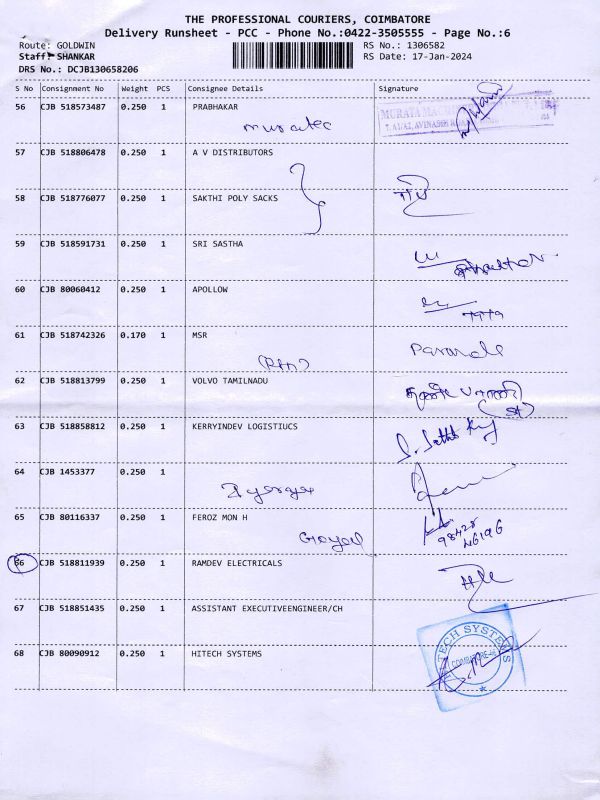 THE PROFESSIONAL COURIERS, COIMBATORE
Delivery Runsheet - PCC - Phone No.:0422-3505555 - Page No.:6
Route: GOLDWIN RS No.: 1306582
Staff: SHANKAR RS Date: 17-Jan-2024
DRS No.: DCJB130658206
S No Consignment No Weight PCS Consignee Details Signature
56 CJB 518573487 0.250 1 PRABHAKAR
muratec
MURATA
57 CJB 518806478 0.250 1 A V DISTRIBUTORS
58 CJB 518776077 0.250 1 SAKTHI POLY SACKS
59 CJB 518591731 0.250 1 SRI SASTHA
60 CJB 80060412 0.250 1 APOLLOW
61 CJB 518742326 0.170 1 MSR
62 CJB 518813799 0.250 1 VOLVO TAMILNADU
63 CJB 518858812 0.250 1 KERRYINDEV LOGISTIUCS
64 CJB 1453377 0.250 1
65 CJB 80116337 0.250 1 FEROZ MON H
Goyal
66 CJB 518811939 0.250 1 RAMDEV ELECTRICALS
67 CJB 518851435 0.250 1 ASSISTANT EXECUTIVEENGINEER/CH
68 CJB 80090912 0.250 1 HITECH SYSTEMS